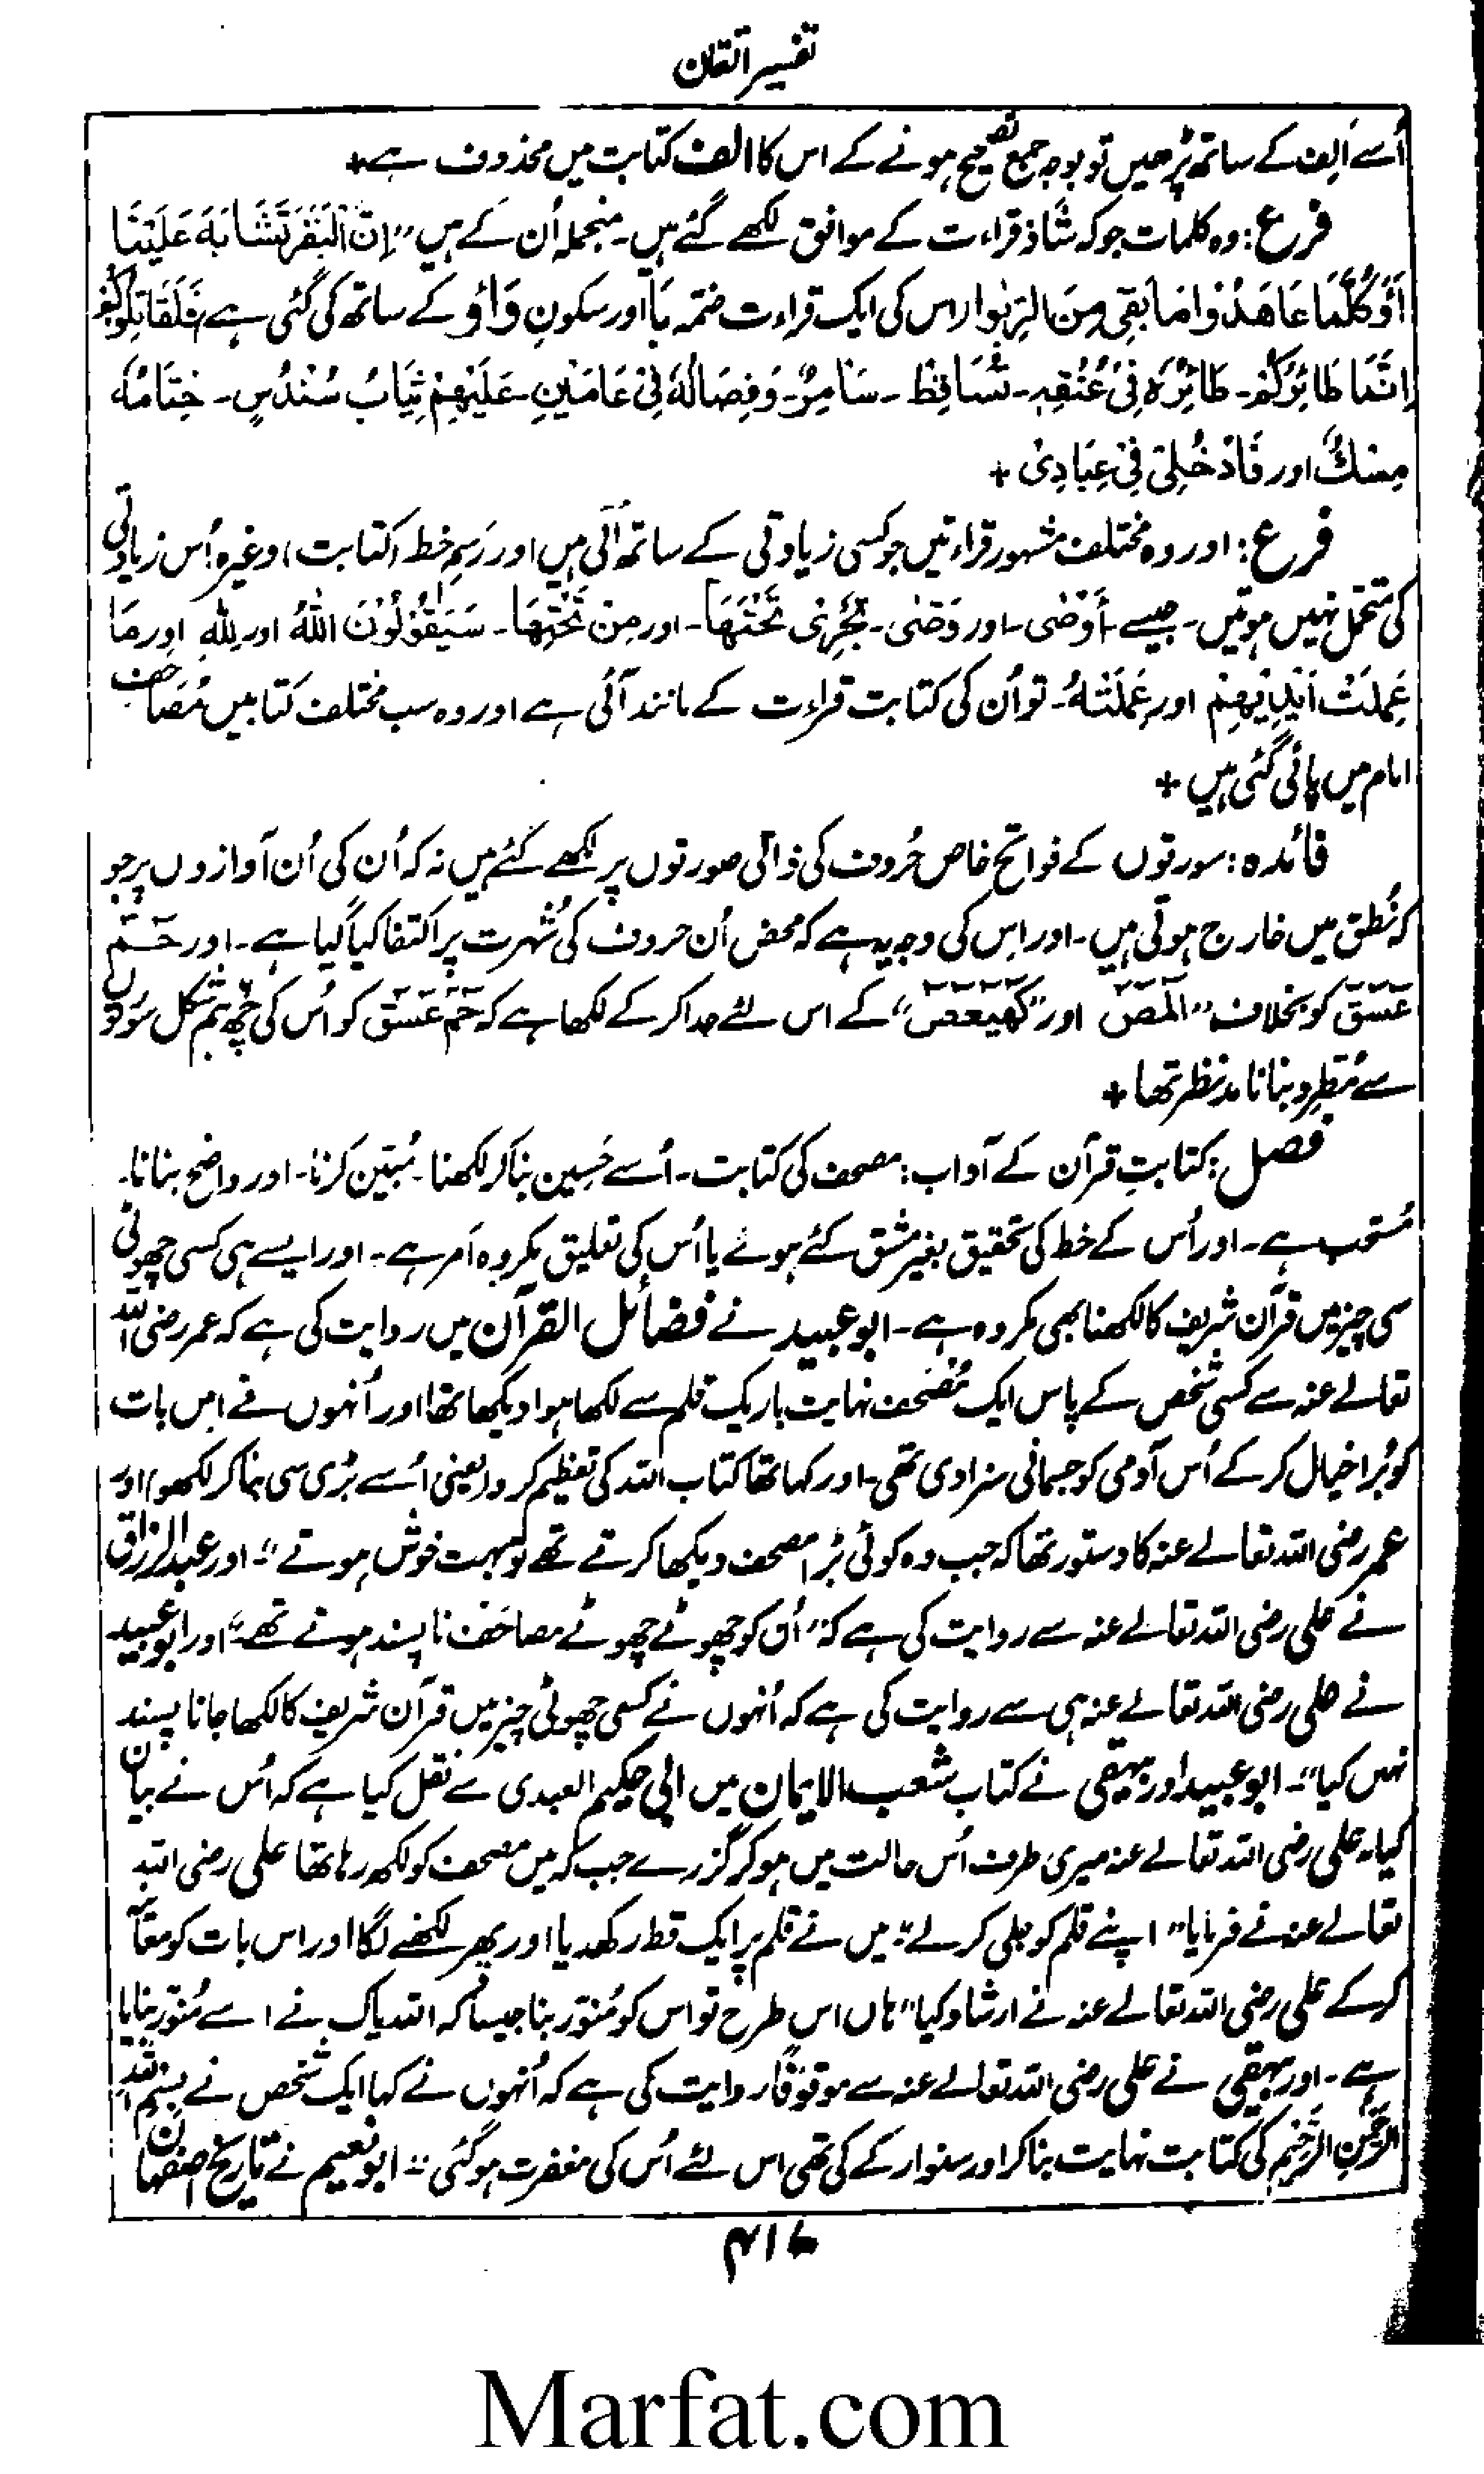 تفسیر اتقان
اُسے اَلِف کے ساتھ پڑھیں تو بوجہ جمع تصحیح ہونے کے اس کا الف کتابت میں محذوف ہے +
فرع: وہ کلمات جو کہ شاذ قراءت کے موافق لکھے گئے ہیں۔ منجملہ اُن کے ہیں "اِنَّ الْبَقَرَ تَشَابَهَ عَلَيْنَا
اَوَ كُلَّمَا عَاهَدُوْا مَا بَقِيَ مِنَ الرِّبٰوا اس کی ایک قراءت ضمّہ بَا اور سکونِ وَاوْ کے ساتھ کی گئی ہے فَلَقَاتَلُوْكُمْ
اِنَّمَا طَائِرُكُمْ۔ طَائِرُهٗ فِيْ عُنُقِهٖ۔ تُسَاقِطْ۔ سَامِرًا۔ وَفِصَالُهٗ فِيْ عَامَيْنِ۔ عَلَيْهِمْ ثِيَابُ سُنْدُسٍ۔ خِتَامُهٗ
مِسْكٌ اور فَادْخُلِيْ فِيْ عِبَادِيْ +
فرع: اور وہ مختلف مشہور قراءتیں جو کسی زیادتی کے ساتھ آئی ہیں اور رَسمِ خط (کتابت) وغیرہ اُس زیادتی
کی متحمل نہیں ہوتیں۔ جیسے۔ أَوْصٰى۔ اور وَصّٰى۔ تَجْرِيْ تَحْتَهَا۔ اور مِنْ تَحْتِهَا۔ سَيَقُوْلُوْنَ اللّٰهُ اور لِلّٰهِ اور مَا
عَمِلَتْ اَيْدِيْهِمْ اور عَمِلَتْهُ۔ تو اُن کی کتابت قراءت کے مانند آئی ہے اور وہ سب مختلف کتابیں مُصَاحف
امام میں پائی گئی ہیں +
فائدہ: سورتوں کے فواتح خاص حُروف کی ذاتی صورتوں پر لکھے گئے ہیں نہ کہ اُن کی اُن آوازوں پر جو
کہ نُطق میں خارج ہوتی ہیں۔ اور اِس کی وجہ یہ ہے کہ محض اُن حروف کی شُہرت پر اکتفا کیا گیا ہے۔ اور حٰمٓ
عٓسٓقٓ کو بخلاف "الٓمٓصٓ اور "كٓهٰيٰعٓصٓ" کے اس لئے جدا کر کے لکھا ہے کہ حٰمٓ عٓسٓقٓ کو اُس کی چھ ہم شکل سورتوں
سے مُطّرِد بنانا مدنظر تھا +
فصل: کتابتِ قرآن کے آداب: مصحف کی کتابت۔ اُسے حَسِین بنا کر لکھنا۔ مُبیّن کرنا۔ اور واضح بنانا۔
مُستحب ہے۔ اور اُس کے خط کی تحقیق بغیر مشق کئے ہوئے یا اُس کی تعلیق مکروہ اَمر ہے۔ اور ایسے ہی کسی چھوٹی
سی چیز میں قرآن شریف کا لکھنا بھی مکروہ ہے۔ ابو عبید نے فضائل القرآن میں روایت کی ہے کہ عمر رضی اللہ
تعالےٰ عنہ سے کسی شخص کے پاس ایک مُصْحَف نہایت باریک قلم سے لکھا ہوا دیکھا تھا اور اُنہوں نے اِس بات
کو بُرا خیال کر کے اُس آدمی کو جسمانی سزا دی تھی۔ اور کہا تھا کتاب اللہ کی تعظیم کرو (یعنی اُسے بڑی سی بنا کر لکھو) اور
عمر رضی اللہ تعالےٰ عنہ کا دستور تھا کہ جب وہ کوئی بڑا مصحف دیکھا کرتے تھے تو بہت خوش ہوتے"۔ اور عبد الرزاق
نے علی رضی اللہ تعالےٰ عنہ سے روایت کی ہے کہ "اُن کو چھوٹے چھوٹے مصاحَف ناپسند ہوتے تھے" اور ابو عبید
نے علی رضی اللہ تعالےٰ عنہ ہی سے روایت کی ہے کہ اُنہوں نے کسی چھوٹی چیز میں قرآن شریف کا لکھا جانا پسند
نہیں کیا"۔ ابو عبید اور بیہقی نے کتاب شعب الایمان میں ابی حکیم العبدی سے نقل کیا ہے کہ اُس نے بیان
کیا۔ علی رضی اللہ تعالےٰ عنہ میری طرف اُس حالت میں ہو کر گزرے جب کہ میں مصحف کو لکھ رہا تھا علی رضی اللہ
تعالےٰ عنہ نے فرمایا "اپنے قلم کو جلی کر لے" میں نے قلم پر ایک قط رکھدیا اور پھر لکھنے لگا اور اس بات کو معائنہ
کر کے علی رضی اللہ تعالےٰ عنہ نے ارشاد کیا "ہاں اس طرح تو اس کو مُنوّر بنا جیسا کہ اللہ پاک نے اسے مُنوّر بنایا
ہے۔ اور بیہقی نے علی رضی اللہ تعالےٰ عنہ سے موقوفًا روایت کی ہے کہ اُنہوں نے کہا ایک شخص نے بِسْمِ اللّٰهِ
الرَّحْمٰنِ الرَّحِيْمِ کی کتابت نہایت بنا کر اور سنوار کے کی تھی اس لئے اُس کی مغفرت ہو گئی" ابو نعیم نے تاریخ اصفہان
۴۱۷
Marfat.com